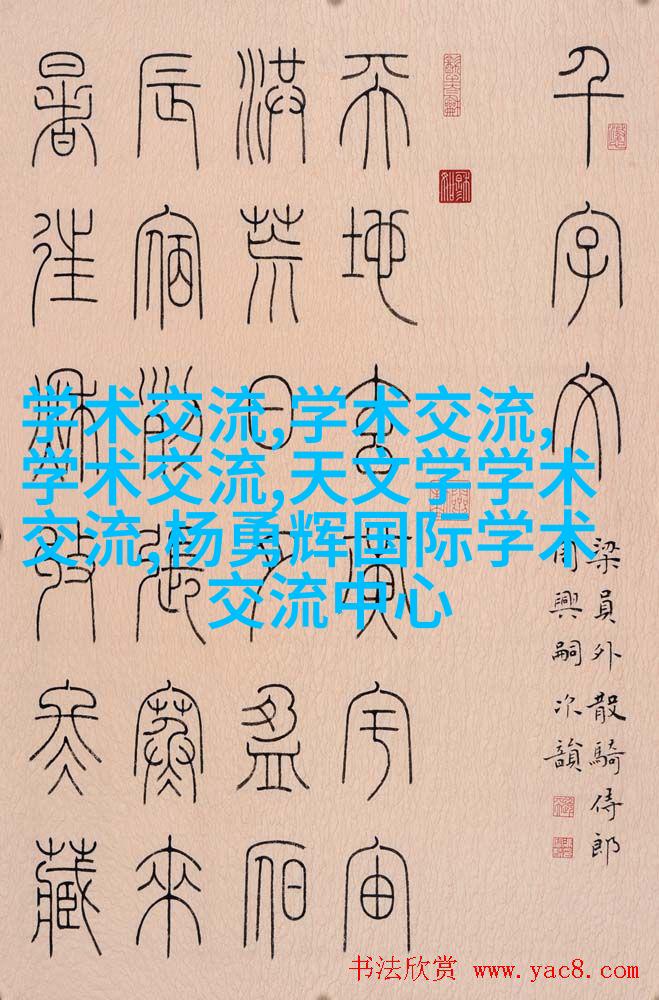 千字文
梁員外散騎侍郎
周興嗣次韻
天地玄黃宇宙
洪荒日月盈昃
辰宿列張寒來
暑往秋收冬藏
学术交流,学术交流,
学术交流,天文学学术
交流,杨勇辉国际学术
交流中心
书法欣赏 www.yac8.com